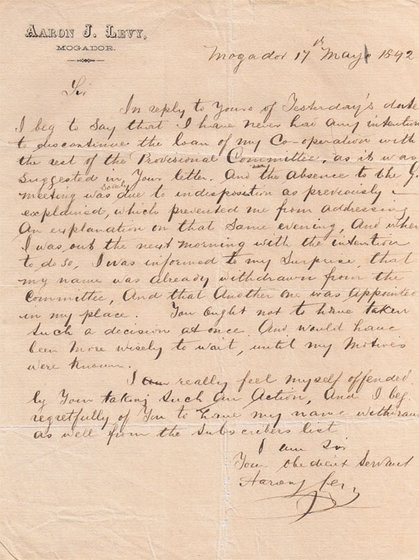 AARON J. LEVY,
MOGADOR.
Mogador 17th May 1892
Sir
In reply to Yours of Yesterday's date
I beg to say that I have never had any intention
to discontinue the loan of my Co-operation with
the rest of the Provisional Committee, as it was
suggested in Your letter. And the absence to the
meeting was solely due to indisposition as previously
explained, which prevented me from addressing
An explanation on that same evening, And when
I was out the next morning with the intention
to do so, I was informed to my Surprise, that
my name was already withdrawn from the
Committee, And that Another one was appointed
in my place. You ought not to have taken
Such a decision at once And would have
been more wisely to wait, until my Motives
were Known.
I really feel myself offended
by Your taking Such an Action, And I beg
regretfully of You to have my name withdrawn
as well from the Subscribers list
I am Sir
Your Obedient Servant
Aaron Levy